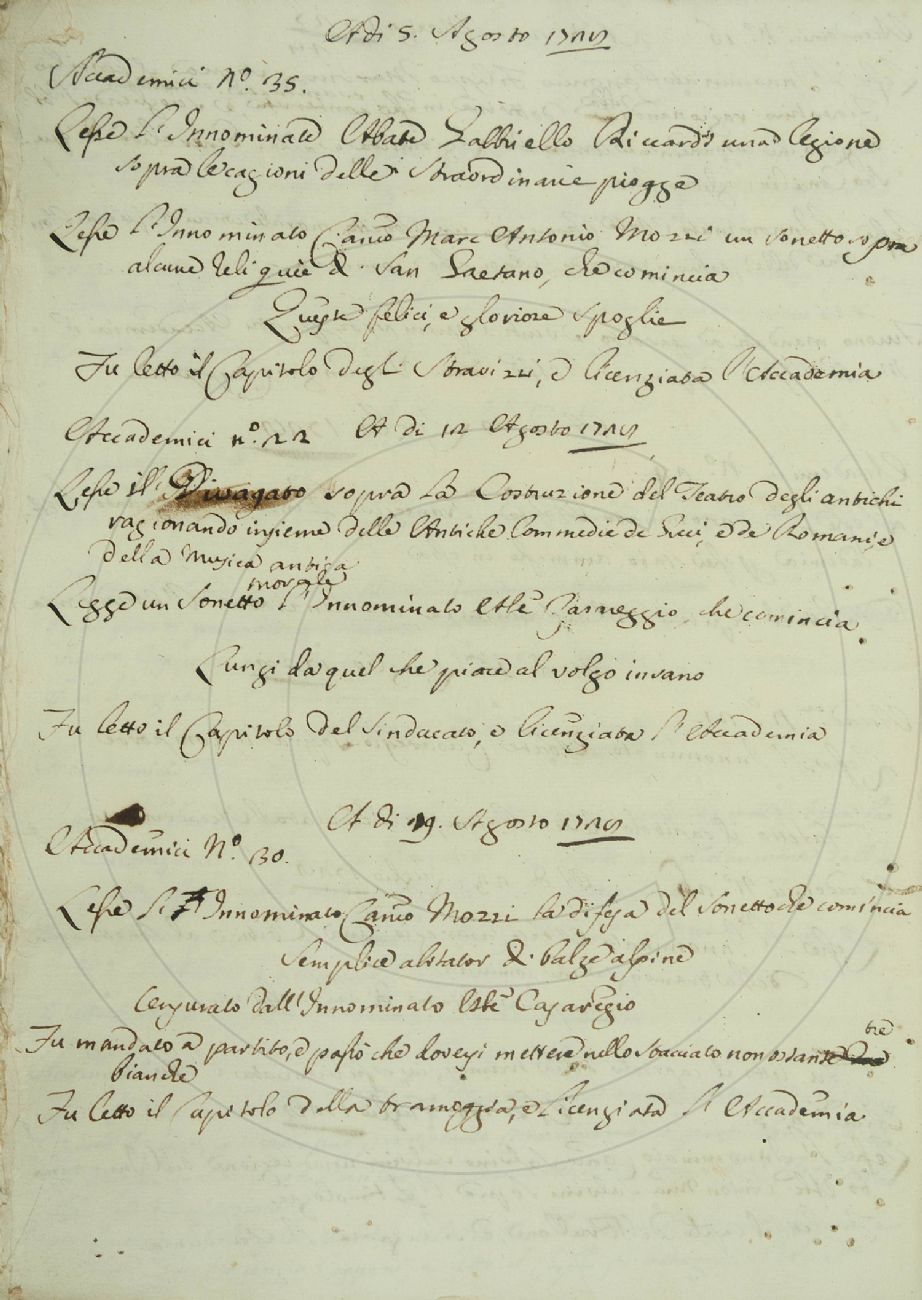 A di 5. Agosto
Accademici N.º 35.
Lesse l'Innominato Abate Gabbriello Riccardi una lezione
sopra le cagioni delle straordinarie piogge
Lesse l'Innominato Can.co Marc Antonio Mozzi un sonetto sopra
alcune Reliquie di San Gaetano, che comincia
Queste felici, e gloriose spoglie
Fu letto il Capitolo degli Stravizzi, e licenziata l'Accademia
Accademici n.º 22 A di 12 Agosto
Lesse il Divagato sopra la Costruzione del Teatro degli antichi
ragionando insieme delle Antiche Commedie de Greci, e de Romani, e
della Musica antica
morale
Legge un Sonetto l'Innominato Casareggio, che comincia
Lungi da quel che piace al volgo insano
Fu letto il Capitolo del Sindacato, e licenziata l'Accademia
A di 19. Agosto
Accademici N.º 30.
Lesse l'Innominato Can.co Mozzi la difesa del Sonetto che comincia
Semplice abitator di balze alpine
Censurato dall'Innominato Casaregio
tre
Fu mandato a partito, e passò che dovessi mettere nello stacciato non ostante
bianche
Fu letto il Capitolo della tramoggia, e licenziata l'Accademia